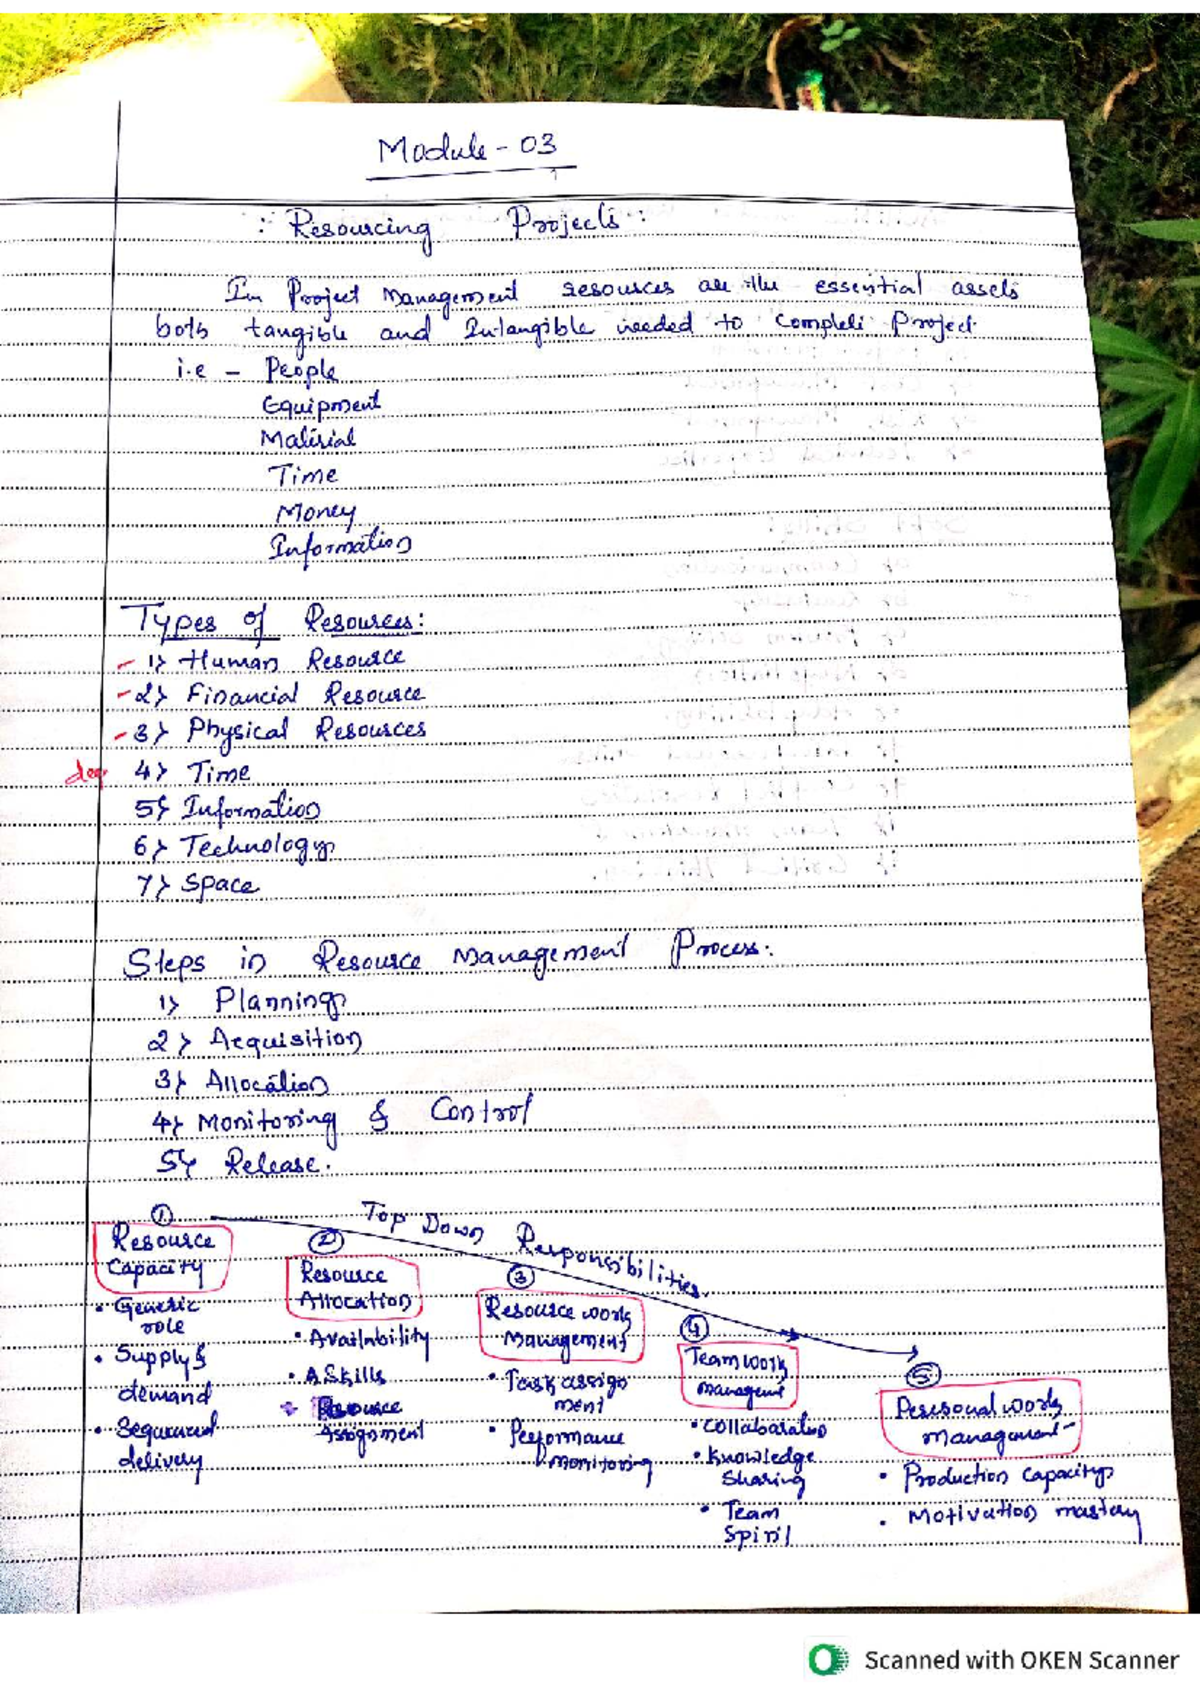 Module - 03
: Resourcing Projects :
In Project Management resources are the essential assets
both tangible and Intangible needed to complete Project.
i.e - People
Equipment
Material
Time
Money
Information
Types of Resources:
1) Human Resource
2) Financial Resource
3) Physical Resources
4) Time
5) Information
6) Technology
7) Space
Steps in Resource Management Process.
1) Planning
2) Acquisition
3) Allocation
4) Monitoring & Control
5) Release.
Top Down Responsibilities.
①
Resource
Capacity
• Generic
role
• Supply &
demand
• Sequenced
delivery
②
Resource
Allocation
• Availability
• Askills
• Resource
Assignment
③
Resource work
Management
• Task assign
ment
• Performance
monitoring
④
Team work
management
• Collaboration
• Knowledge
Sharing
• Team
Spirit
⑤
Personal work
management
• Production capacity
• Motivation mastery
Scanned with OKEN Scanner